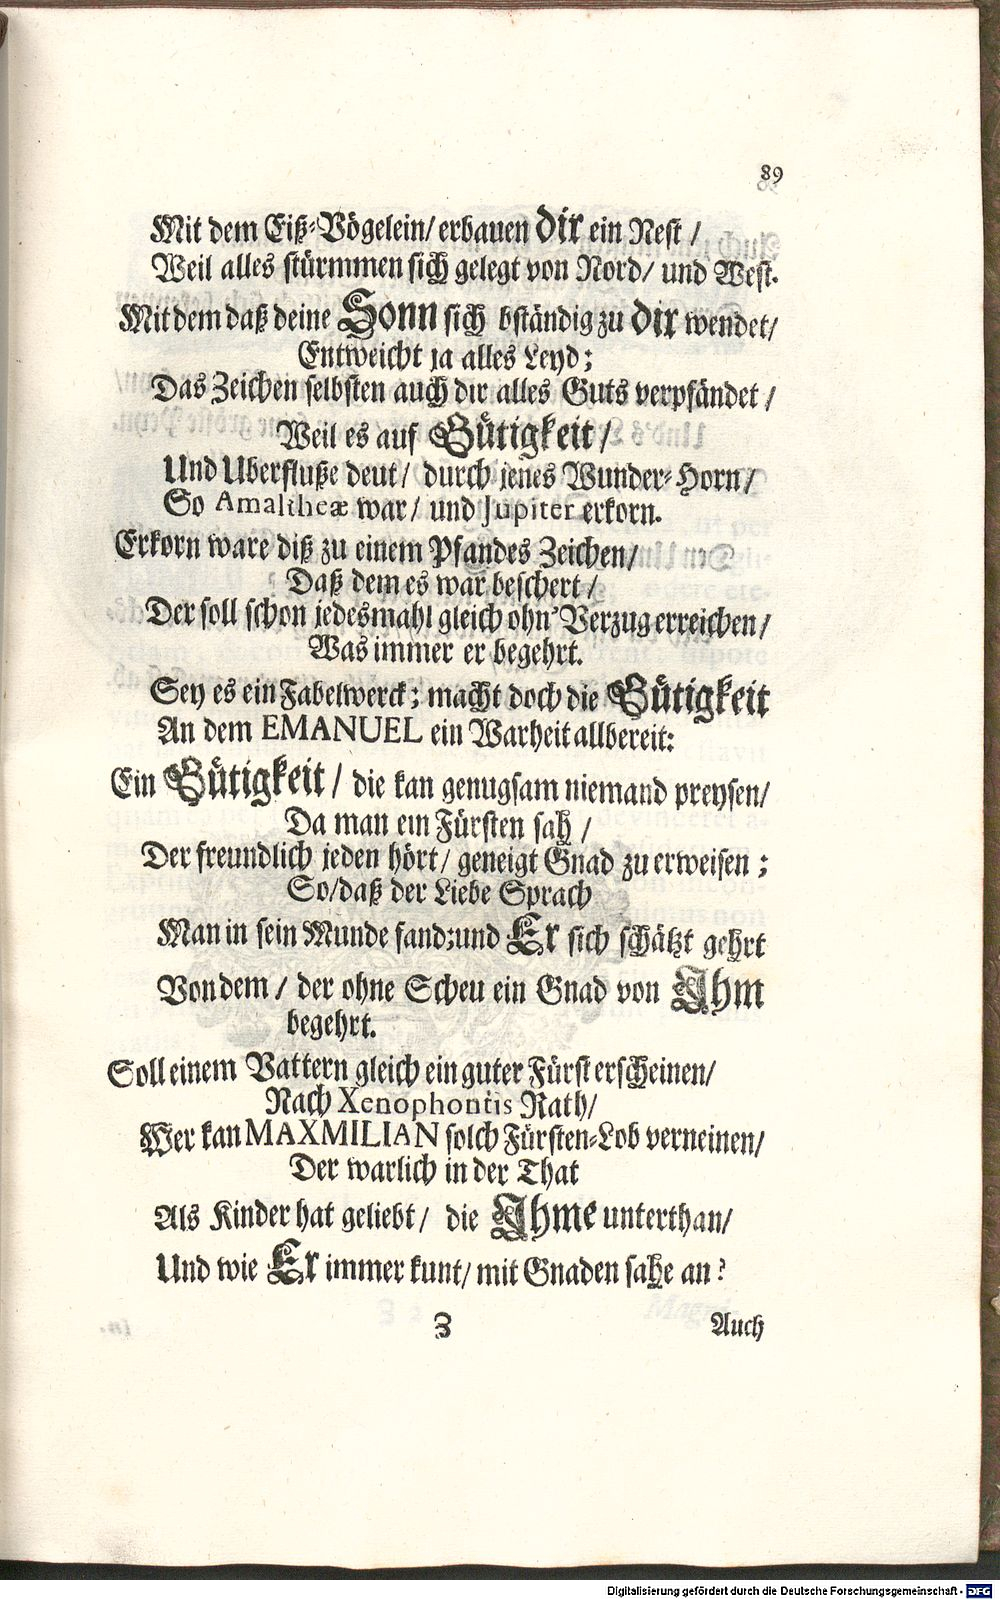 89
Mit dem Eiß-Vögelein/ erbauen dir ein Nest /
Weil alles stürmmen sich gelegt von Nord/ und West.
Mit dem daß deine Sonn sich bständig zu dir wendet/
Entweicht ja alles Leyd;
Das Zeichen selbsten auch dir alles Guts verpfändet /
Weil es auf Gütigkeit /
Und Uberfluße deut/ durch jenes Wunder-Horn/
So Amaltheæ war/ und Jupiter erkorn.
Erkorn ware diß zu einem Pfandes Zeichen/
Daß dem es war beschert /
Der soll schon jedesmahl gleich ohn' Verzug erreichen/
Was immer er begehrt.
Sey es ein Fabelwerck; macht doch die Gütigkeit
An dem EMANUEL ein Warheit allbereit:
Ein Gütigkeit / die kan genugsam niemand preysen/
Da man ein Fürsten sah /
Der freundlich jeden hört/ geneigt Gnad zu erweisen ;
So/daß der Liebe Sprach
Man in sein Munde fand:und Er sich schätzt gehrt
Von dem / der ohne Scheu ein Gnad von Ihm
begehrt.
Soll einem Vattern gleich ein guter Fürst erscheinen/
Nach Xenophontis Rath/
Wer kan MAXMILIAN solch Fürsten-Lob verneinen/
Der warlich in der That
Als Kinder hat geliebt/ die Ihme unterthan/
Und wie Er immer kunt/ mit Gnaden sahe an?
Z
Auch
Digitalisierung gefördert durch die Deutsche Forschungsgemeinschaft - DFG